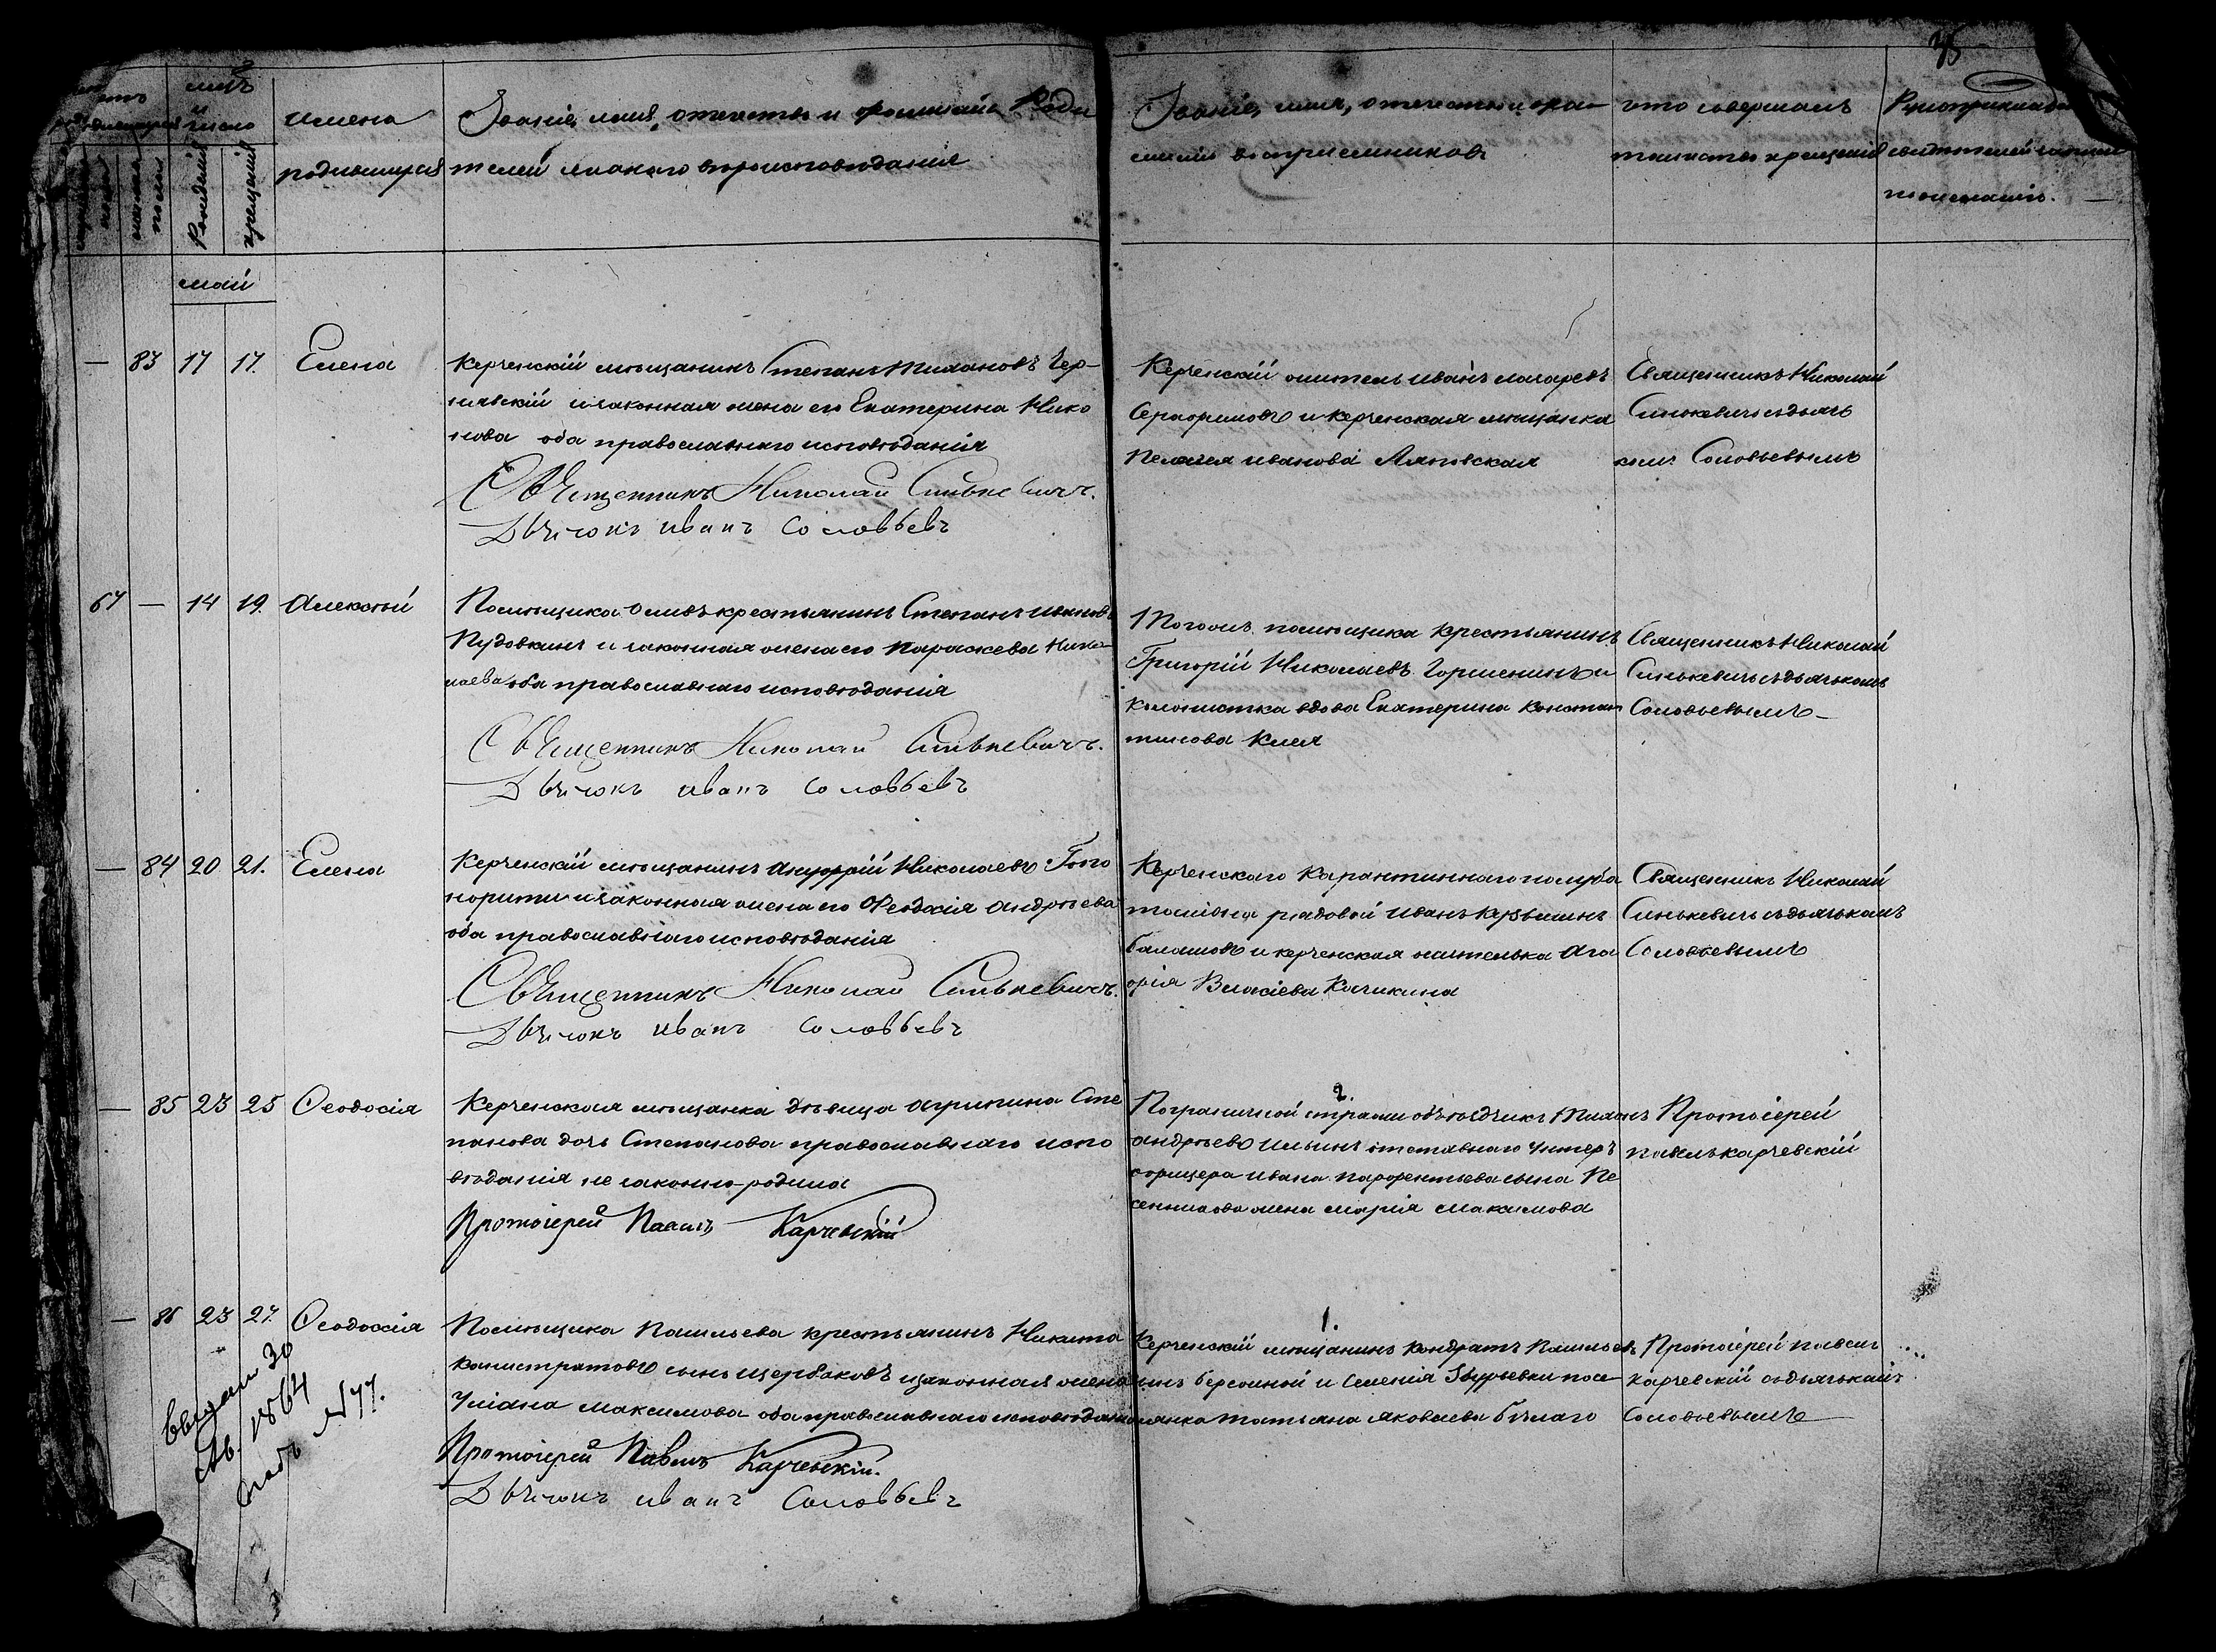 35
мцъ
и
число
имена
родившихся
рожденія
крещенія
Званіе, имя, отчество и фамилія Роди
телей и какого вѣроисповѣданія
Званіе, имя, отчество и фа
милія воспріемниковъ
кто совершалъ
таинство крещенія
май
— 83 17 17. Елена
Керченскій мѣщанинъ Степанъ Чер-
нявскій и законная жена его Екатерина Нико
нова оба православнаго исповѣданія
Священникъ Николай Синькевичъ.
Дьячокъ Иванъ Соловьевъ
Керченскій житель Иванъ Лазаревъ
Серафимовъ и керченская мѣщанка
Пелагея Иванова
Священникъ Николай
Синькевичъ съ дьяч
комъ Соловьевымъ
67 — 14 19. Алексѣй
Помѣщика крестьянинъ Степанъ Ивановъ
Пудовкинъ и законная жена его Параскева Нико
лаева оба православнаго исповѣданія
Священникъ Николай Синькевичъ.
Дьячокъ Иванъ Соловьевъ
Тогожъ помѣщика крестьянинъ
Григорій Николаевъ Горшенинъ и
колонистка вдова Екатерина Констан
тинова
Священникъ Николай
Синькевичъ съ дьячькомъ
Соловьевымъ —
— 84 20 21. Елена
Керченскій мѣщанинъ Николаевъ
и законная жена его Феодосія Андреева
оба православнаго исповѣданія
Священникъ Николай Синькевичъ.
Дьячокъ Иванъ Соловьевъ
Керченскаго Карантиннаго полуба
таліона рядовой Иванъ Кузьминъ
Балашовъ и керченская жителька Ага
фія Власіева Качикина
Священникъ Николай
Синькевичъ съ дьячькомъ
Соловьевымъ
— 85 23 25 Ѳеодосія
Керченская мѣщанка дѣвица Агрипина Сте
панова дочь Степанова православнаго испо
вѣданія не законно-родила
Протоіерей Павелъ Карчевскій
2.
Пограничной стражи объѣздчикъ
Андреевъ Ильинъ отставнаго Унтеръ
офицера Ивана Парфентьева сына
жена Марія Максимова
Протоіерей
Павелъ Карчевскій
— 86 23 27. Ѳеодосія
Помѣщика крестьянинъ Никита
Калистратовъ сынъ Щербаковъ и законная жена
Уліана Максимова оба православнаго исповѣданія
Протоіерей Павелъ Карчевскій.
Дьячокъ Иванъ Соловьевъ
1.
Керченскій мѣщанинъ Кондратъ
и селенія посе
лянка Татьяна Яковлева Бѣлаго
Протоіерей Павелъ
Карчевскій съ дьячькомъ
Соловьевымъ
30
1864
№ 77.